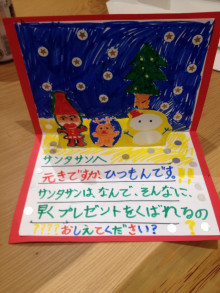 サンタサンへ
元きですか、ひつもんです。!!
サンタサンは、なんで、そんなに、
早くプレゼントをくばれるの
????おしえてください?